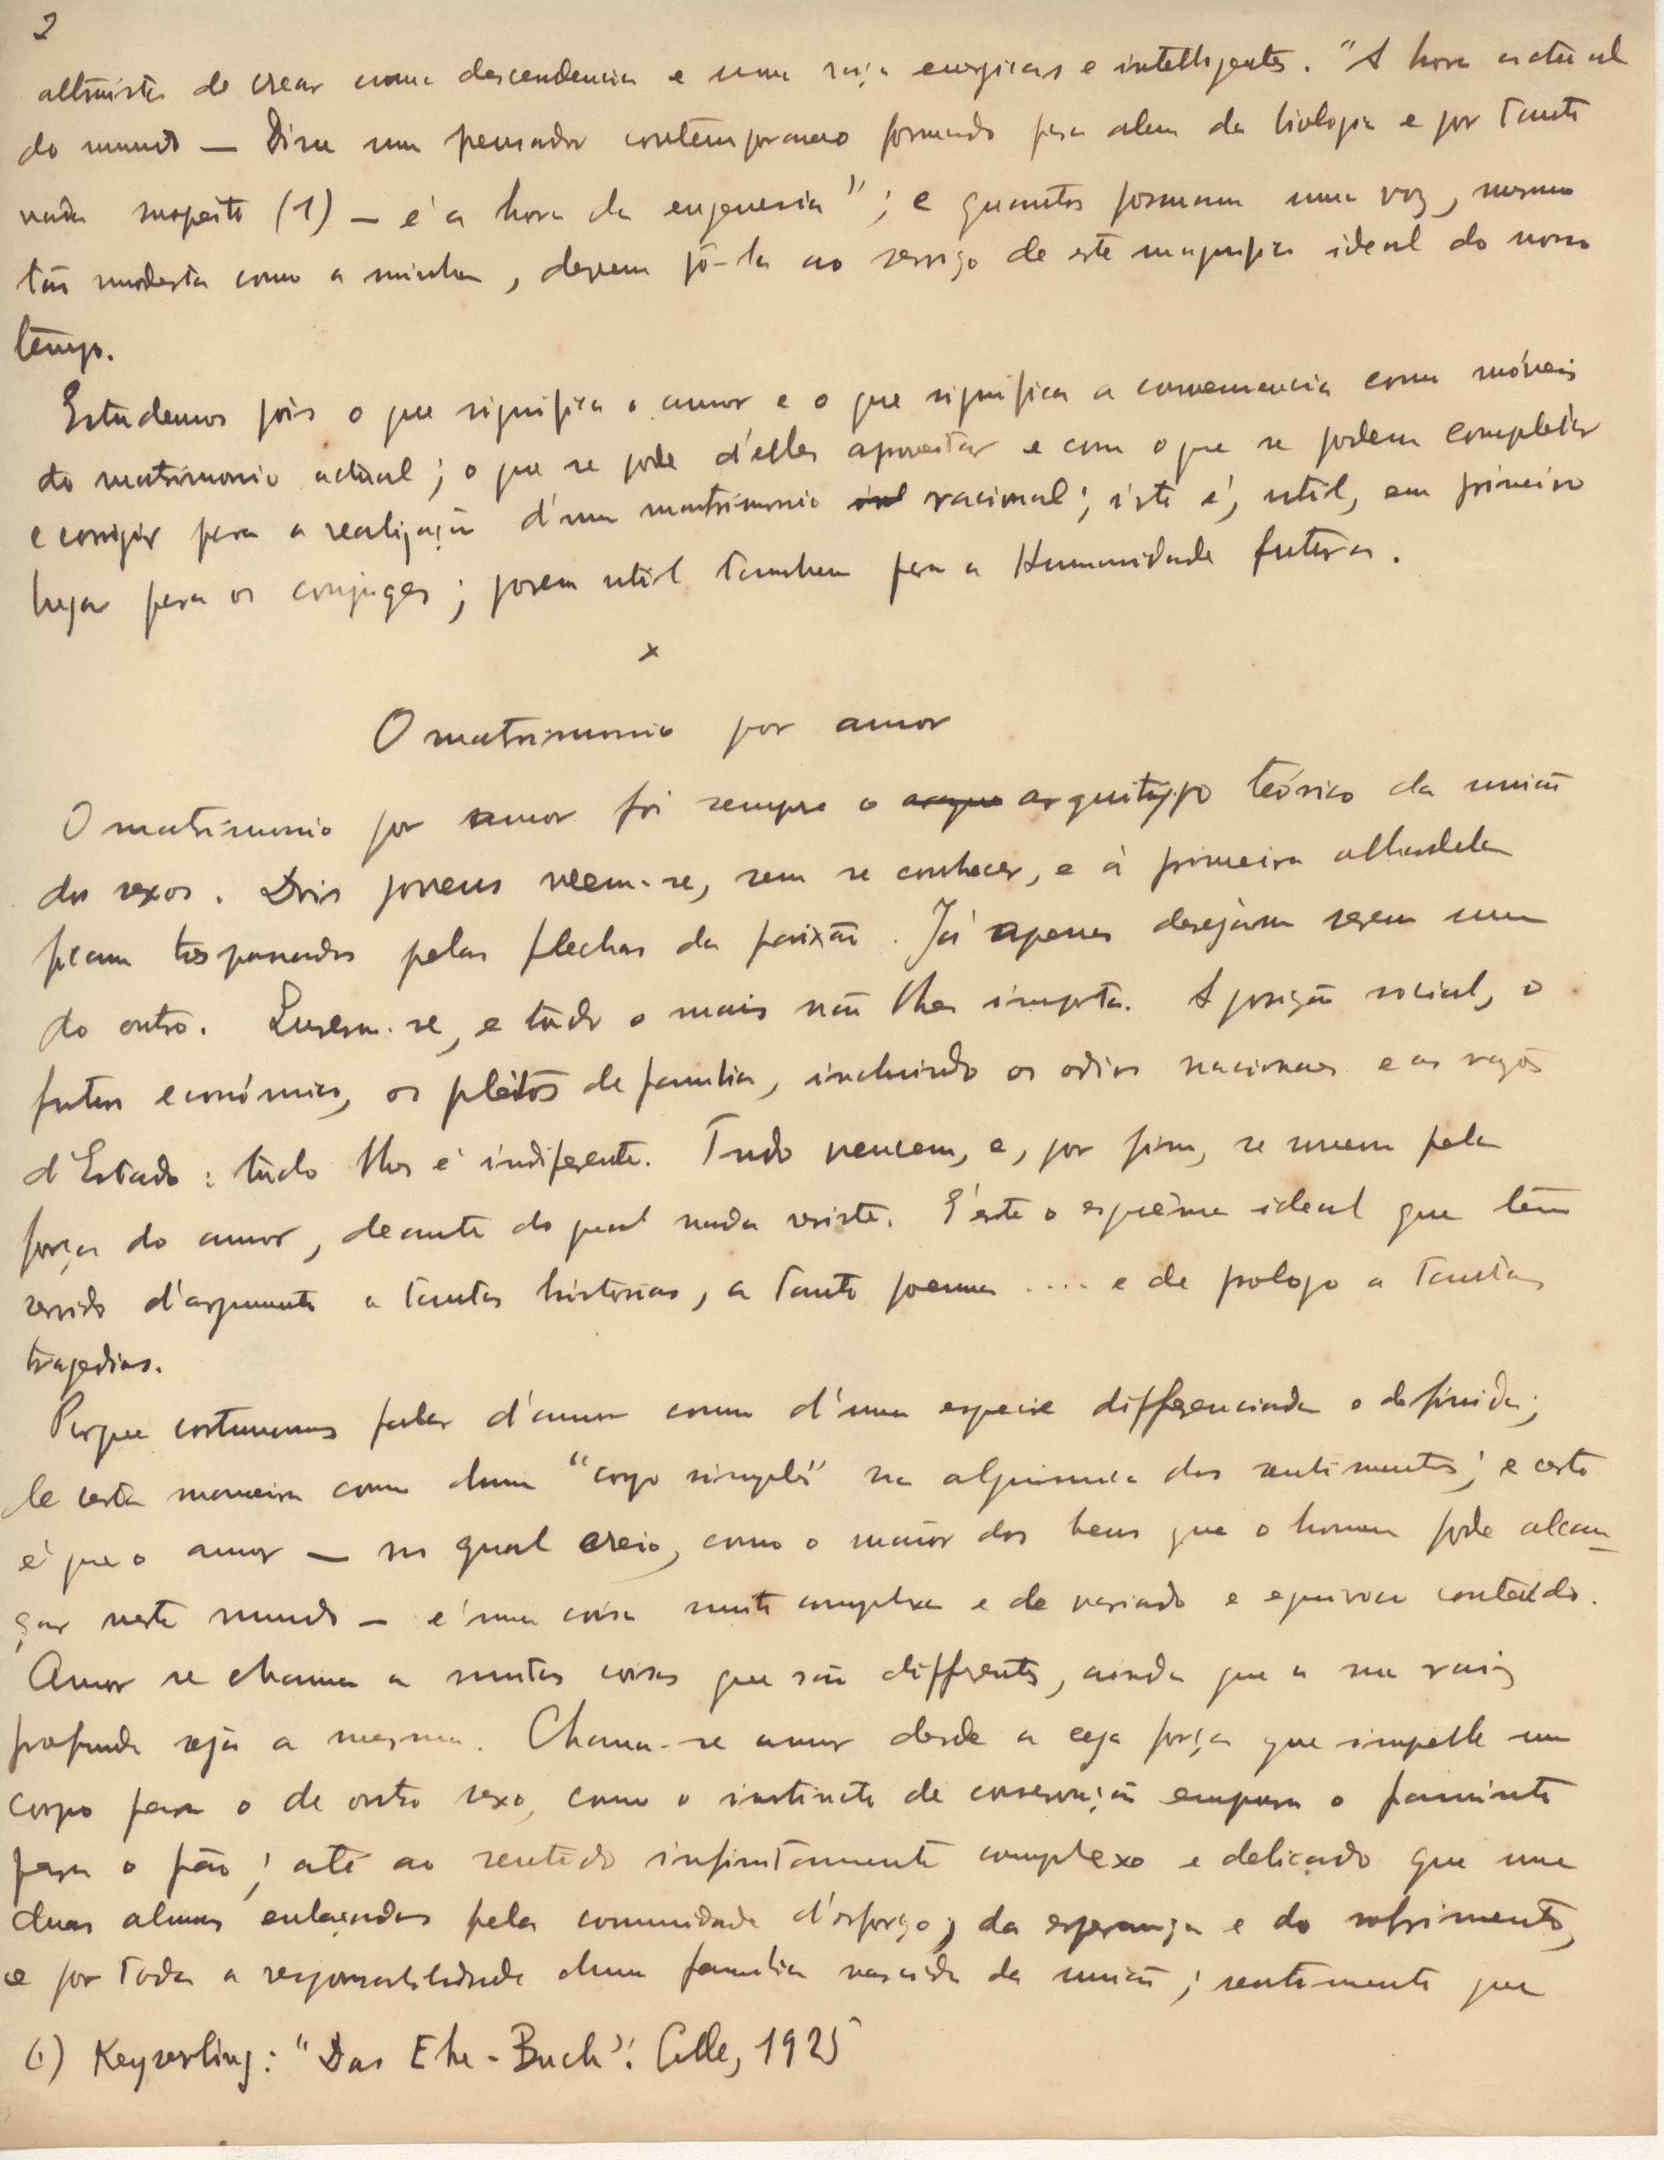 2
altruista de crear uma descendencia e uma raça energicas e intelligentes. "A hora actual
do mundo — Disse um pensador contemporaneo formado para alem da biologia e por tanto
nada suspeito (1) — é a hora da eugenesia"; e quantos formam uma voz, mesmo
tão modesta como a minha, devem pô-la ao serviço de este magnifico ideal do nosso
tempo.
Estudemos pois o que significa o amor e o que significa a conveniencia como móveis
do matrimonio actual; o que se pode d'elles aproveitar e com o que se podem completar
e corrigir para a realização d'um matrimonio racional; isto é, util, em primeiro
lugar para os conjuges; porem util tambem para a Humanidade futura.
x
O matrimonio por amor
O matrimonio por amor foi sempre o arquitypo teórico da união
dos sexos. Dois jovens veem-se, sem se conhecer, e á primeira olhadela
ficam trespassados pelas flechas da paixão. Já apenas desejam serem um
do outro. Querem-se, e tudo o mais não lhes importa. A posição social, o
futuro económico, os pleitos de familia, incluindo os odios nacionaes e as razões
d'Estado: tudo lhes é indiferente. Tudo vencem, e, por fim, se unem pela
força do amor, deante do qual nada resiste. É este o esquêma ideal que tem
servido d'argumento a tantas historias, a tanto poema .... e de prologo a tantas
tragedias.
Porque costumamos falar d'amor como d'uma especie differenciada e definida;
de certa maneira como dum "corpo simples" na alquimia dos sentimentos; e certo
é que o amor — no qual creio, como o maior dos bens que o homem pode alcan-
çar neste mundo — é uma coisa muito complexa e de variado e equivoco conteúdo.
Amor se chama a muitas coisas que são differentes, ainda que a sua raiz
profunda seja a mesma. Chama-se amor desde a cega força que impelle um
corpo para o de outro sexo, como o instincto de conservação empurra o faminto
para o pão; até ao sentido infinitamente complexo e delicado que une
duas almas enlaçadas pela comunidade d'esforço, da esperança e do sofrimento,
e por toda a responsabilidade duma familia nascida da união; sentimento que
(1) Keyserling: "Das Ehe-Buch". Celle, 1925